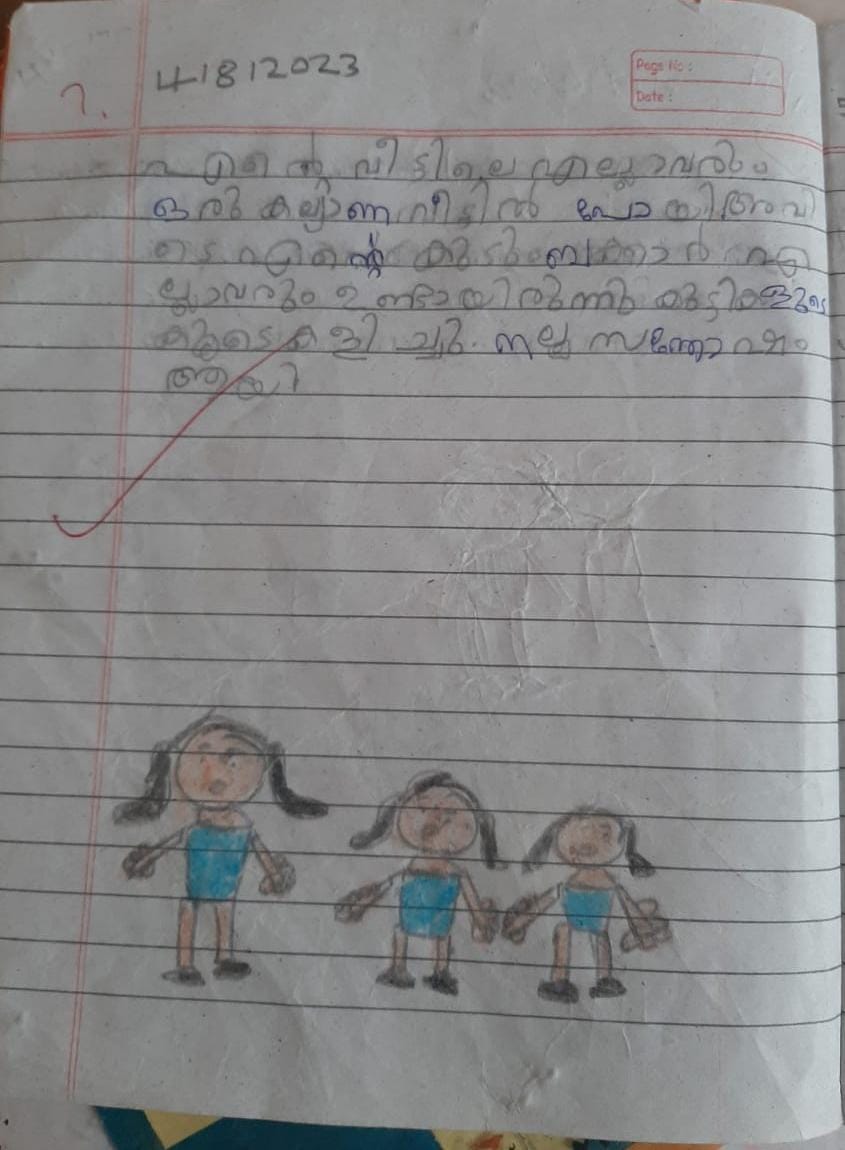 7. 4/8/2023
Page No :
Date :
എന്റെ വീട്ടിലെ എല്ലാവരും
ഒരു കല്യാണ വീട്ടിൽ പോയി അവി
ടെ എന്റെ കുടുംബക്കാർ എ
ല്ലാവരും ഉണ്ടായിരുന്നു കുട്ടികളുടെ
കൂടെ കളിച്ചു. നല്ല സന്തോഷം
ആയി